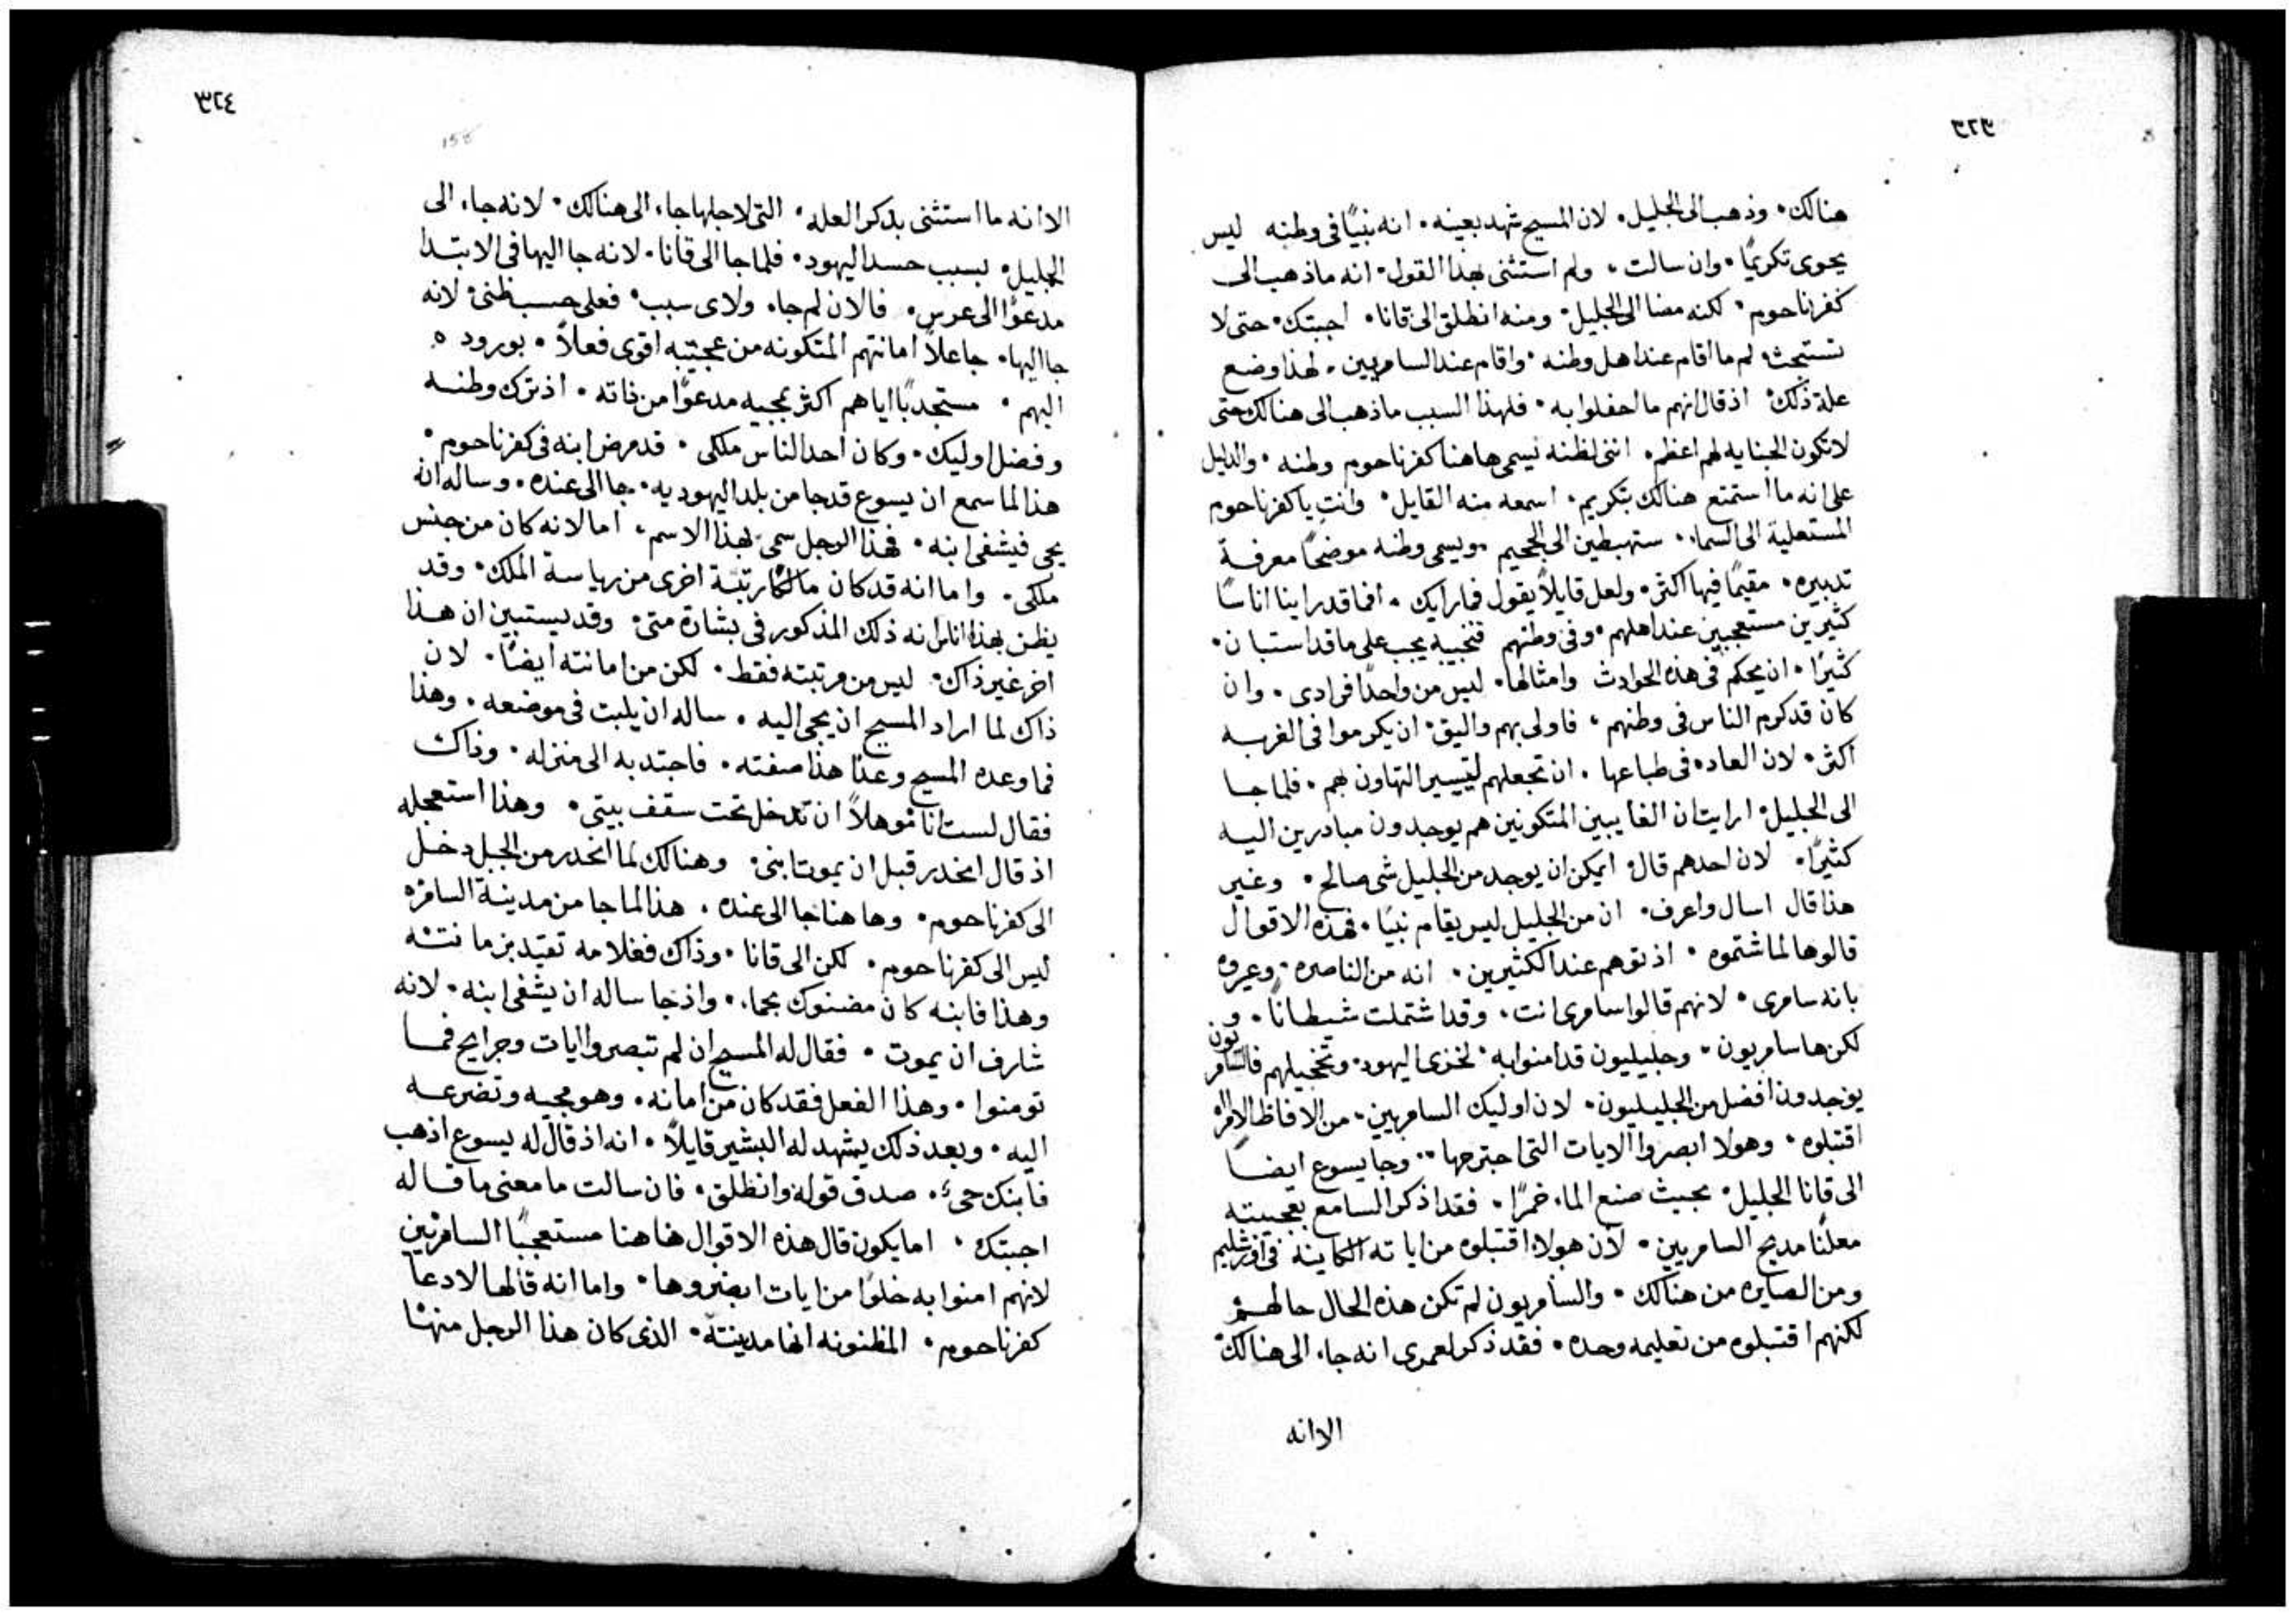 ٣٢٣
هنالك. وذهب الى الجليل. لان المسيح شهد بعينه. انه نبيًا في وطنه ليس
يحوى تكريمًا. وان سالت. ولم استثنى بهذا القول. انه ماذهب الى
كفرناحوم. لكنه مضا الى الجليل. ومنه انطلق الى قانا. اجبتك. حتى لا
تستبحث. لم ما اقام عند اهل وطنه. واقام عند السامريين. لهذا وضع
علة ذلك. اذ قال انهم ما احفلوا به. فلهذا السبب ماذهب الى هنالك حتى
لاتكون الجنايه لهم اعظم. اننى لظنه يسمى هاهنا كفرناحوم وطنه. والدليل
على انه ما استمتع هنالك بتكريم. اسمعه منه القايل. وانتِ ياكفرناحوم
المستعلية الى السماء. ستهبطين الى الجحيم. ويسمى وطنه موضحًا معرفة
تدبيره. مقيمًا فيها اكثر. ولعل قايلاً يقول فمارايك. افما قدراينا اناسًا
كثيرين مستعجبين عند اهلهم. وفى وطنهم فنجيبه يجب على ماقد استبان.
كثيرًا. ان يحكم فى هذه الحوادث وامثالها. ليس من واحدًا فرادى. وان
كان قد كرم الناس فى وطنهم. فاولى بهم واليق. ان يكرموا فى الغربه
اكثر. لان العاده فى طباعها. ان تجعلهم لتيسير التهاون بهم. فلما جا
الى الجليل. ارايت ان الغايبين المتكونين هم يوجدون مبادرين اليه
كثيرًا. لان احدهم قال. ايمكن ان يوجد من الجليل شى صالح. وغير
هذا قال اسال واعرف. ان من الجليل ليس يقام نبيًا. فهذه الاقوال
قالوها لما شتموه. اذ توهم عند الكثيرين. انه من الناصره. وعيروه
بانه سامرى. لانهم قالوا سامرى انت. وقد اشتملت شيطانًا. و
لكن ها سامريون. وجليليون قد امنوا به. لخزى اليهود. وتخجيلهم فالسامريون
يوجدون افضل من الجليليون. لان اوليك السامريين. من الافاظ الامراه
اقتبلوه. وهولا ابصروا الايات التى اجترحها.. وجا يسوع ايضاً
الى قانا الجليل. بحيث صنع الماء خمرًا. فقد اذكر السامع بعجيبته
معلنًا مديح السامريين. لان هولاء اقتبلوه من اياته الكاينة فى اورشليم
ومن الصايره من هنالك. والسامريون لم تكن هذه الحال حالهم
لكنهم اقتبلوه من تعليمه وحده. فقد ذكر لعمرى انه جاء الى هنالك
الا انه
٣٢٤
158
الا انه ما استثنى بذكر العله. التى لاجلها جاء الى هنالك. لانه جاء الى
الجليل. بسبب حسد اليهود. فلما جا الى قانا. لانه جا اليها فى الابتدا
مدعوًا الى عرس. فالان لم جاء ولاى سبب. فعلى حسب ظنى. لانه
جا اليها. جاعلاً امانتهم المتكونه من عجيبته اقوى فعلاً. بوروده
اليهم. مستجدبًا اياهم اكثر بمجيه مدعوًا من ذاته. اذ ترك وطنه
وفضل اوليك. وكان احد الناس ملكى. قد مرض ابنه فى كفرناحوم.
هذا لما سمع ان يسوع قدجا من بلد اليهوديه. جا الى عنده. وساله انه
يجى فيشفى ابنه. فهذا الرجل سمى بهذا الاسم. اما لانه كان من جنس
ملكى. واما انه قد كان مالكًا رتبة اخرى من رياسة الملك. وقد
يظن بهذا اناس انه ذلك المذكور فى بشارة متى. وقد يستبين ان هذا
اخر غير ذاك. ليس من مرتبته فقط. لكن من امانته ايضًا. لان
ذاك لما اراد المسيح ان يجى اليه. ساله ان يلبث فى موضعه. وهذا
فما وعده المسيح وعدًا هذا صفته. فاجتدبه الى منزله. وذاك
فقال لست انا موهلاً ان تدخل تحت سقف بيتى. وهذا استعجله
اذ قال انحدر قبل ان يموت ابنى. وهنالك لما انحدر من الجبل دخل
الى كفرناحوم. وها هنا جا الى عنده. هذا لما جا من مدينة السامره
ليس الى كفرناحوم. لكن الى قانا. وذاك فغلامه تقيد بزمانته
وهذا فابنه كان مضنوك بحماء. واذ جا ساله ان يشفى ابنه. لانه
شارف ان يموت. فقال له المسيح ان لم تبصروا ايات وجرايح فما
تومنوا. وهذا الفعل فقد كان من امانه. وهو مجيه وتضرعه
اليه. وبعد ذلك يشهد له البشير قايلاً. انه اذ قال له يسوع اذهب
فابنك حىً. صدق قوله وانطلق. فان سالت ما معنى ما قاله
اجبتك. اما يكون قال هذه الاقوال هاهنا مستعجبًا السامريين
لانهم امنوا به خلوًا من ايات ابصروها. واما انه قالها لادعا
كفرناحوم. المظنونه انها مدينته. الذى كان هذا الرجل منها